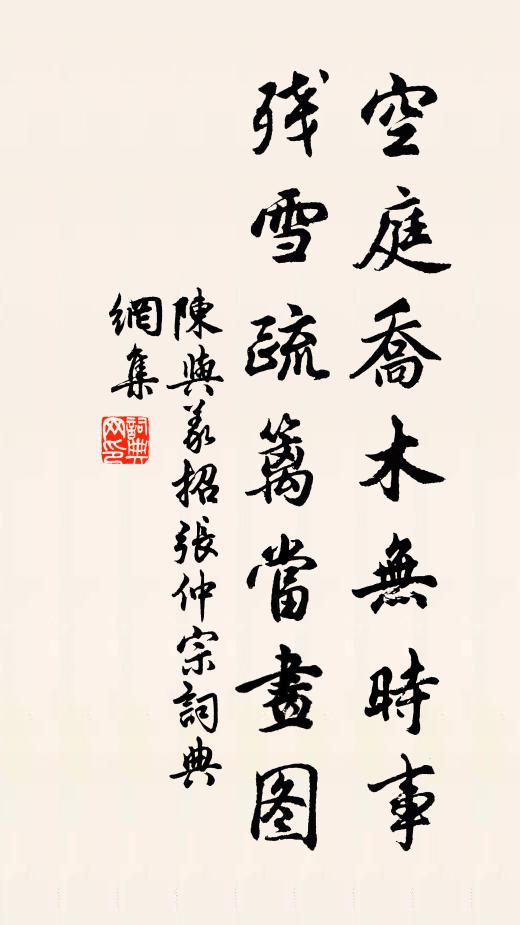 空庭喬木無時事
残雪疏籬當畫图
陳與义招張仲宗詞典
網集
詞典
网印